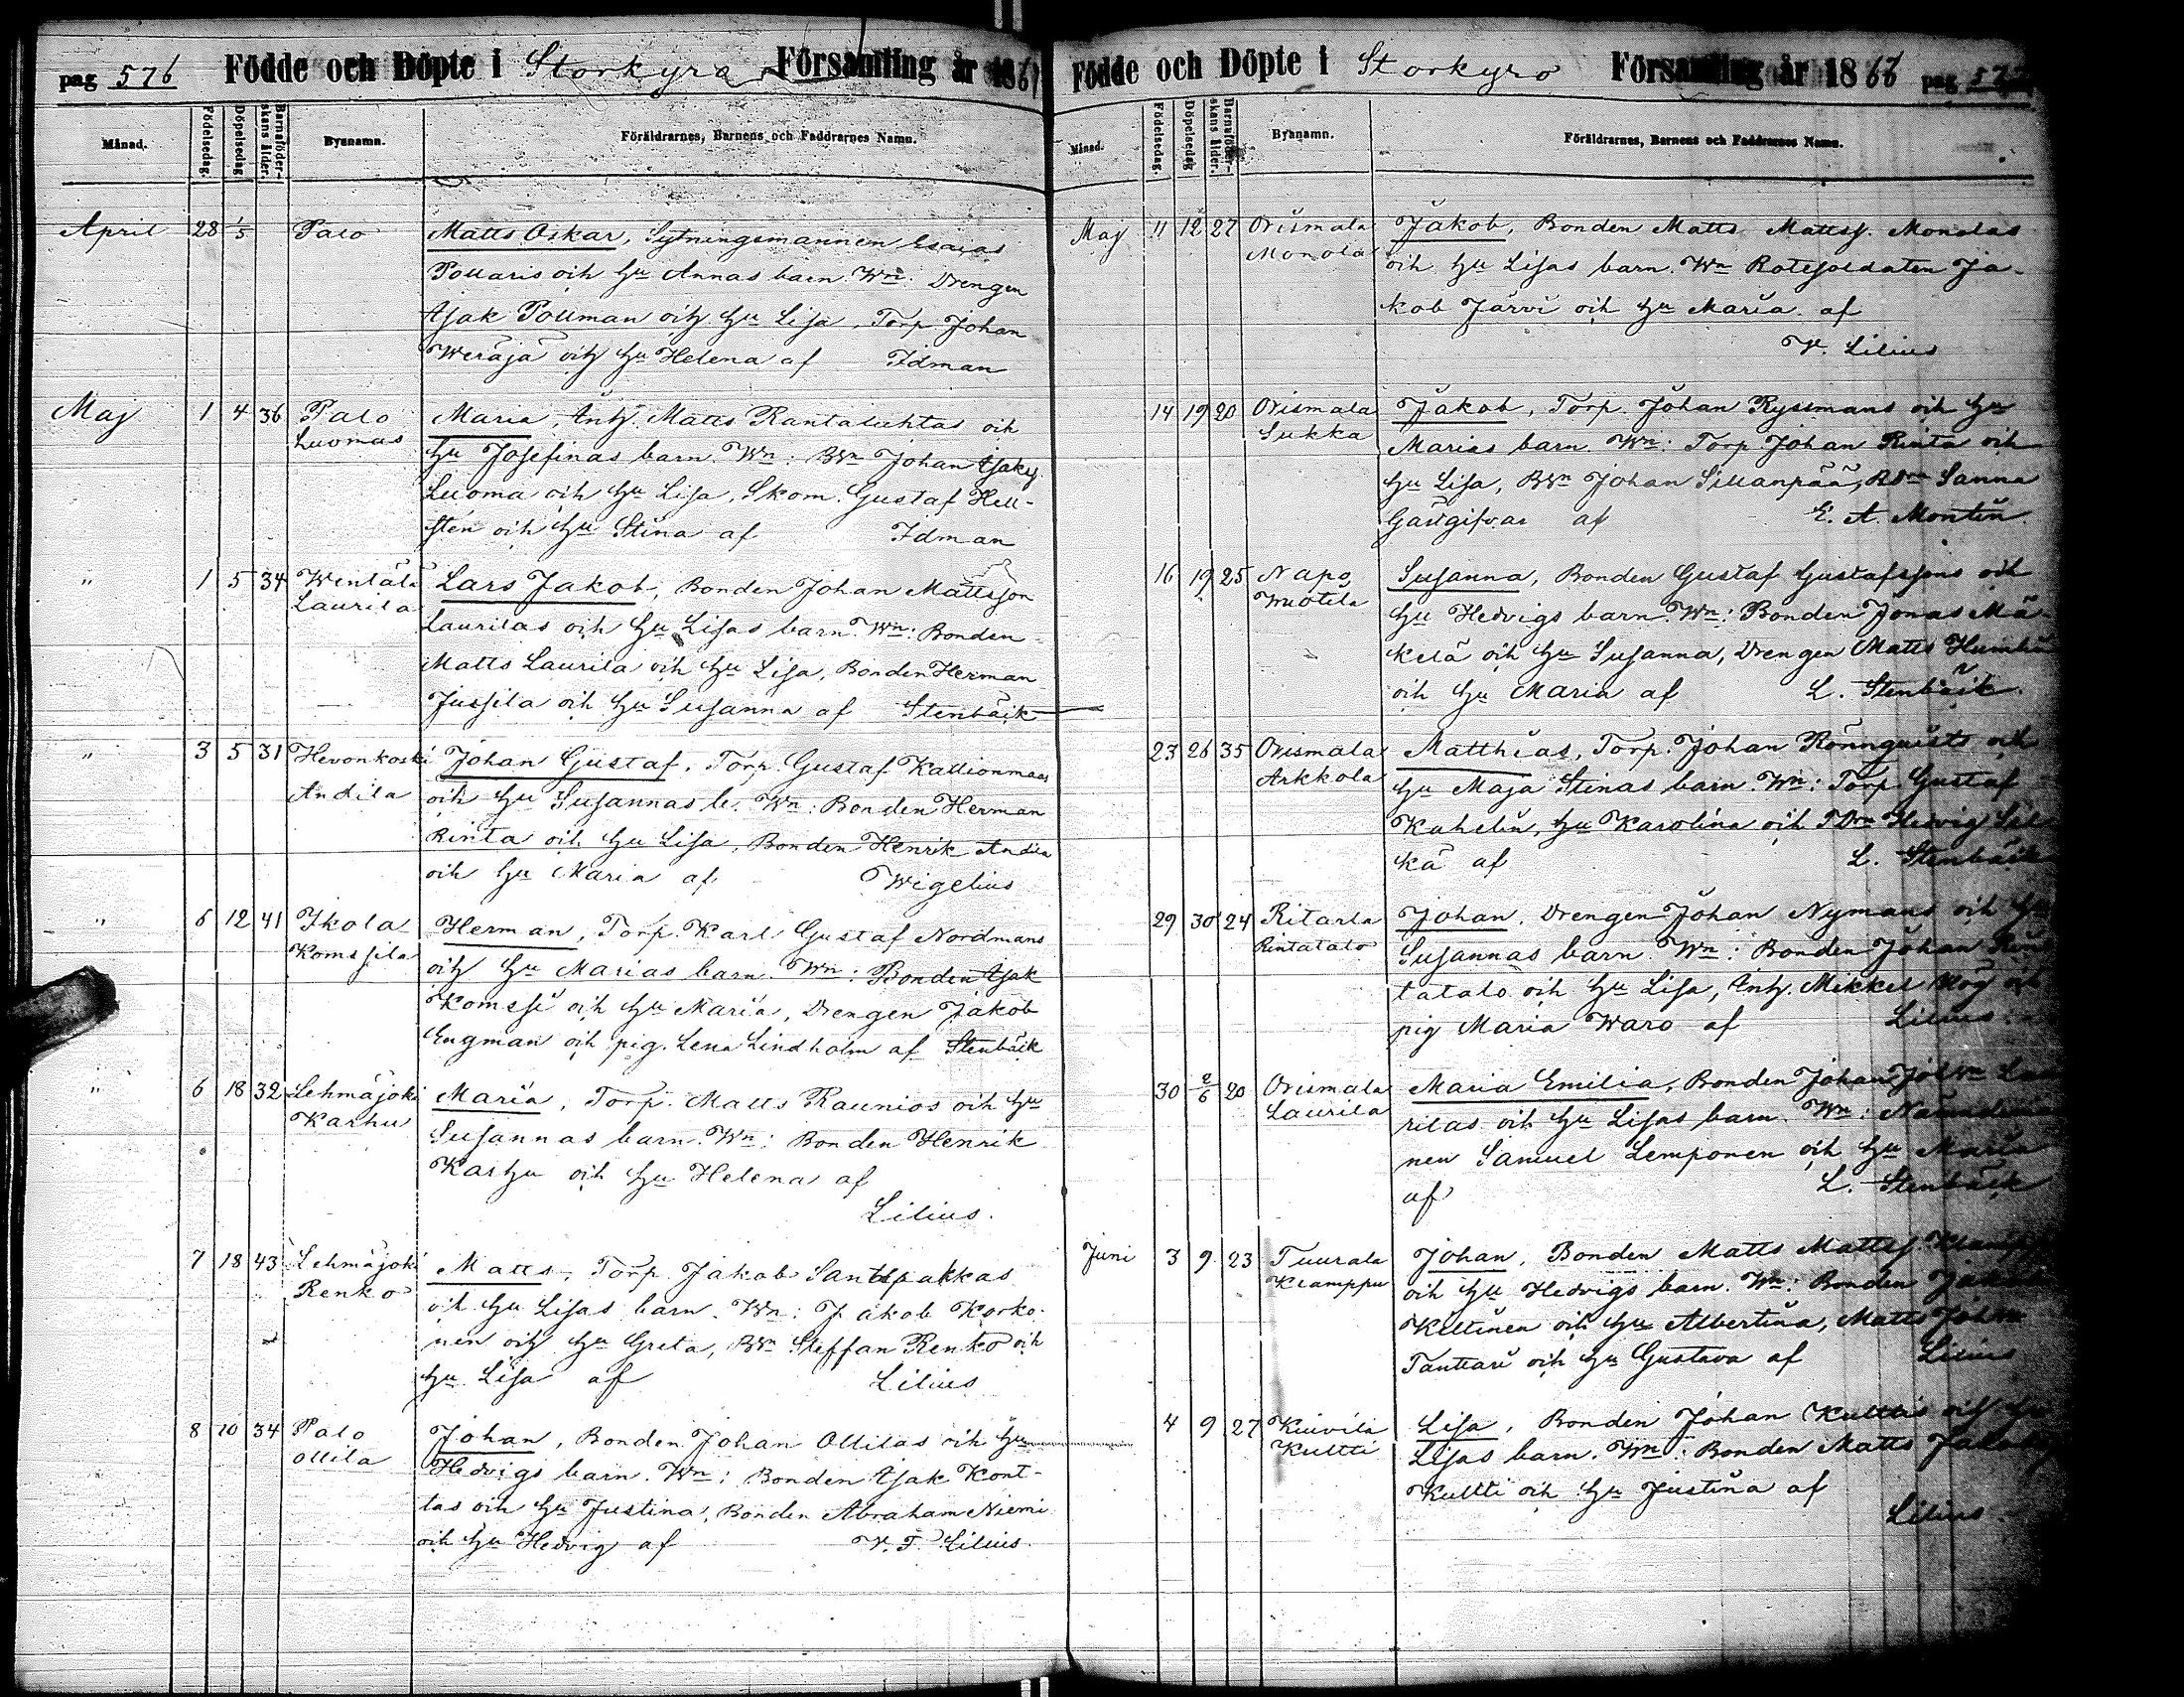 pag 576 Födde och Döpte i Storkyro Församling år 186
Månad. Födelsedag. Döpelsedag Barnaföderskans ålder Bynamn. Föräldrarnes, Barnens och Faddrarnes Namn.
April 28 1/5 Palo Matts Oskar, Sytningsmannen Esaias
Pollaris och Hu Annas barn. Wn: Drengen
Isak Pollman och Hu Lisa, Torp Johan
Weräjä och Hu Helena af Idman
Maj 1 4 36 Palo Maria, Inh. Matts Rantaluhtas och
Luomas Hu Josefinas barn. Wn: BSn Johan Isaks.
Luoma och Hu Lisa, Skom. Gustaf Hell-
stén och Hu Stina af Idman
" 1 5 34 Wentälä Lars Jakob, Bonden Johan Mattsson
Laurila Laurilas och Hu Lisas barn. Wn: Bonden
Matts Laurila och Hu Lisa, Bonden Herman
Jussila och Hu Susanna af Stenbäck
" 3 5 31 Hevonkoski Johan Gustaf, Torp. Gustaf Kallionmaas
Andila och Hu Susannas b. Wn: Bonden Herman
Rinta och Hu Lisa, Bonden Henrik Andila
och Hu Maria af Wigelius
" 5 12 41 Ikola Herman, Torp. Karl Gustaf Nordmans
Komssila och Hu Marias barn. Wn: Bonden Isak
Komssi och Hu Maria, Drengen Jakob
Engman och pig. Lena Lindholm af Stenbäck
" 6 18 32 Lehmäjoki Maria, Torp. Matts Raunios och Hu
Karhu Susannas barn. Wn: Bonden Henrik
Karhu och Hu Helena af
Lilius.
7 18 43 Lehmäjoki Matts, Torp. Jakob Santapakkas
Renko och Hu Lisas barn. Wn: Jakob Korko-
nen och Hu Greta, BSn Steffan Renko och
Hu Lisa af Lilius
8 10 34 Palo Johan, Bonden Johan Ollilas och Hu
Ollila Hedvigs barn. Wn: Bonden Isak Kont-
tas och Hu Justina, Bonden Abraham Niemi
och Hu Hedvig af V. T. Lilius.
Födde och Döpte i Storkyro Församling år 1866 pag 577
Månad. Födelsedag. Döpelsedag Barnaföderskans ålder. Bynamn. Föräldrarnes, Barnens och Faddrarnes Namn.
Maj 11 12 27 Orismala Jakob, Bonden Matts Mattss. Monolas
Monola och Hu Lisas barn. Wn Rotesoldaten Ja-
kob Järvi och Hu Maria af
V. Lilius
14 19 20 Orismala Jakob, Torp. Johan Ryssmans och Hu
Sukka Marias barn. Wn: Torp Johan Rinta och
Hu Lisa, BSn Johan Sillanpää, BDr Sanna
Gästgifvar af E. A. Montin.
16 19 25 Napo Susanna, Bonden Gustaf Gustafssons och
Wuotila Hu Hedvigs barn. Wn: Bonden Jonas Mä-
kelä och Hu Susanna, Drengen Matts
och Hu Maria af L. Stenbäck.
23 26 35 Orismala Matthias, Torp. Johan Rönnquists och
Arkkola Hu Maja Stinas barn. Wn: Torp. Gustaf
Kahelin, Hu Karolina och TDr Hedvig Säl
kä af L. Stenbäck
29 30 24 Ritaala Johan, Drengen Johan Nymans och Hu
Rintatalo Susannas barn. Wn: Bonden Johan Rin
tatalo och Hu Lisa, Inh. Mikkel och
pig Maria Waro af Lilius.
30 2/6 20 Orismala Maria Emilia, Bonden Johan Lau
Laurila rilas och Hu Lisas barn. Wn: Nämnde
nen Samuel Lemponen och Hu Maria
af L. Stenbäck
Juni 3 9 23 Tuurala Johan, Bonden Matts Mattss. Klamppu
Klamppu och Hu Hedvigs barn. Wn: Bonden Jakob
Kiltinen och Hu Albertina, Matts Johan
Tanttari och Hu Gustava af Lilius
4 9 27 Kuivila Lisa, Bonden Johan Kulttis och Hu
Kultti Lisas barn. Wn: Bonden Matts Jakobss
Kultti och Hu Justina af
Lilius.